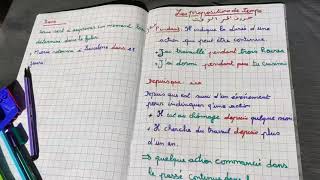 Dans
Sert à exprimer un moment
déterminé dans le futur
Marie retourne à Barcelone dans 15
jours.
Les Prépositions de Temps
حروف الجر الوقت
Pendant: Il indique la durée d'une
action qui peut être continue
J'ai travaillé pendant trois heures
J'ai dormi pendant que tu cuisinais
Depuis que
Depuis que est suivi d'un événement
pour indiquer d'une
action
Il est au chômage depuis quelque mois
Il cherche du travail depuis plus
d'un an.
⇒ quelque action commencée dans
le passé continue dans